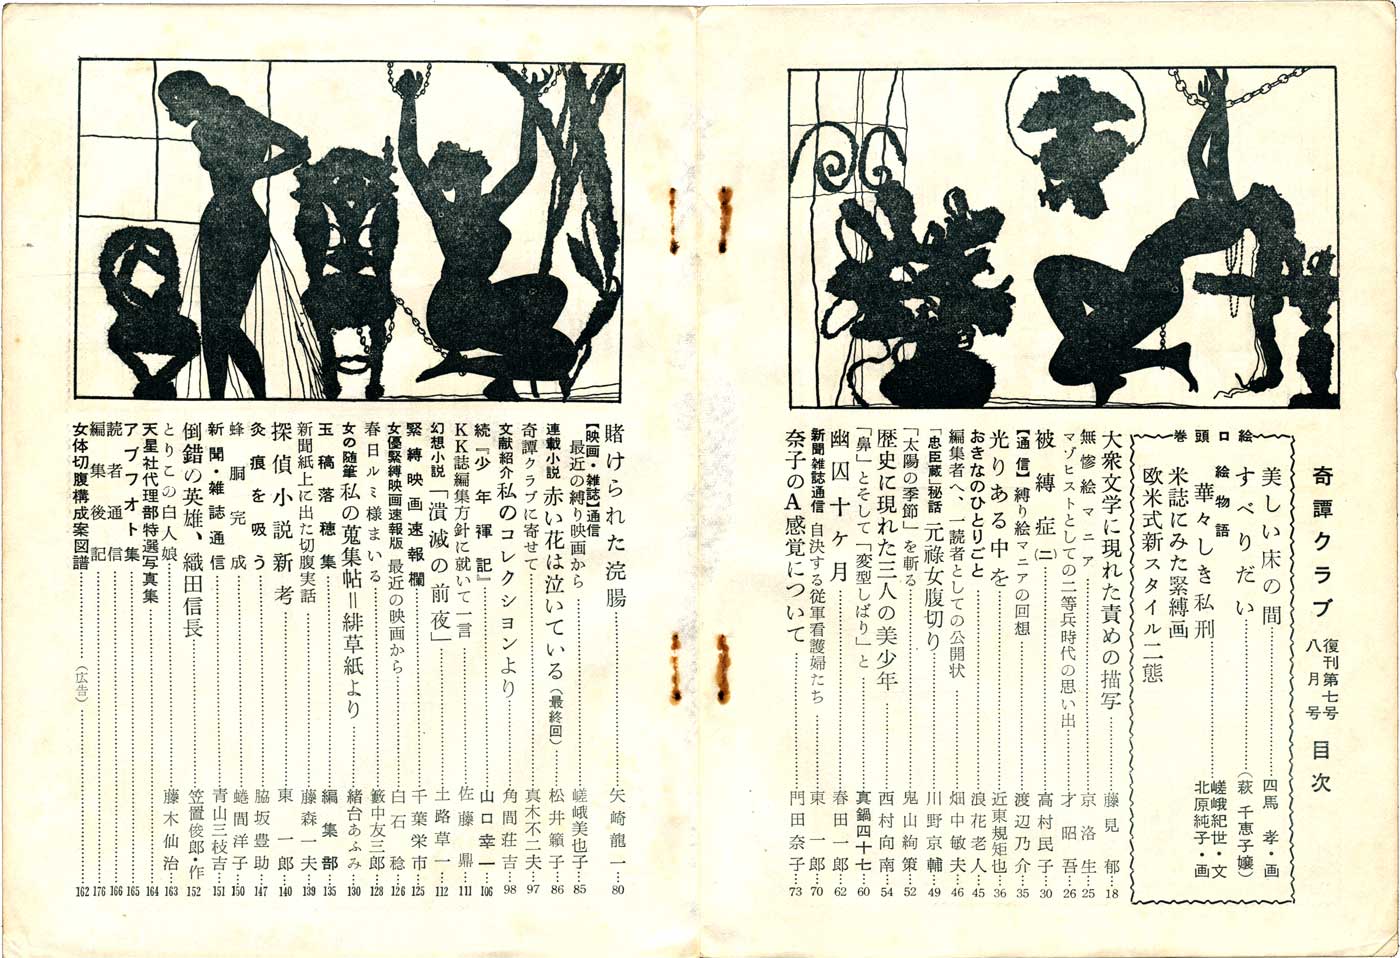 奇譚クラブ 復刊第七号 八月号 目次
口絵 美しい床の間……四馬孝・画
すべりだい……(萩千恵子嬢)
絵物語 華々しき私刑……嵯峨紀世・文 北原純子・画
巻頭 米誌にみた緊縛画
欧米式新スタイル二態
大衆文学に現れた責めの描写……藤見郁…18
無惨絵マニア……京洛生…25
マゾヒストとしての二等兵時代の思い出……才昭吾…26
被縛症(二)……高村民子…30
【通信】縛り絵マニアの回想……渡辺乃介…35
光りある中を……近東規矩也…36
おきなのひとりごと……浪花老人…45
編集者へ、一読者としての公開状……畑中敏夫…46
「忠臣蔵」秘話 元禄女腹切り……川野京輔…49
「太陽の季節」を斬る……鬼山絢策…52
歴史に現れた三人の美少年……西村向南…54
「鼻」とそして「変型しばり」と……真鍋四十七…60
幽囚十ヶ月……春田一郎…62
新聞雑誌通信 自決する従軍看護婦たち……東一郎…70
奈子のA感覚について……門田奈子…73
賭けられた浣腸……矢崎龍一…80
【映画・雑誌】通信 最近の縛り映画から……嵯峨美也子…85
連載小説 赤い花は泣いている(最終回)……松井籟子…86
奇譚クラブに寄せて……真木不二夫…97
文献紹介 私のコレクションより……角間荘吉…98
続『少年褌記』……山口幸一…106
KK誌編集方針に就いて一言……佐藤鼎…111
幻想小説 「潰滅の前夜」……土路草一…112
緊縛映画速報欄……千葉栄市…125
女優緊縛映画速報版 最近の映画から……白石稔…126
春日ルミ様まいる……籔中友三郎…128
女の随筆 私の蒐集帖=緋草紙より……緒台あふみ…130
玉稿落穂集……編集部…135
新聞紙上に出た切腹実話……藤森一夫…139
探偵小説新考……東一郎…140
灸痕を吸う……脇坂豊助…147
蜂胴完成……蜷間洋子…150
新聞・雑誌通信……青山三枝吉…151
倒錯の英雄、織田信長……笠置俊郎・作…152
とりこの白人娘……藤木仙治…163
天星社代理部特選写真集……164
アブフォト集……165
読者通信……166
編集後記……176
女体切腹構成案図譜……(広告)……162